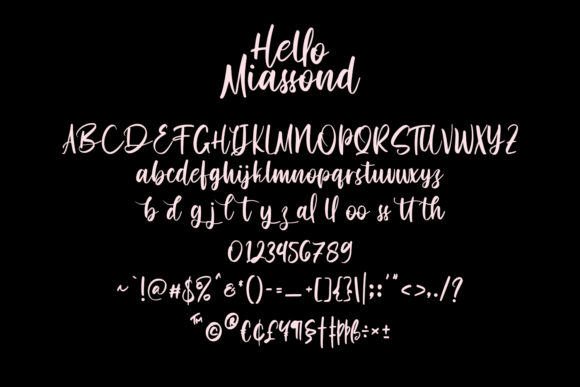 Hello
Miassond
ABCDEFGHIJKLMNOPQRSTUVWXYZ
abcdefghijklmnopqrstuvwxyz
b d g j l t y z al ll oo ss tt th
0123456789
~`!@#$%^&*()-=_+[]{}\|;:'"<>,./?
™©®€¢£¥¶§†‡Þþß÷×±